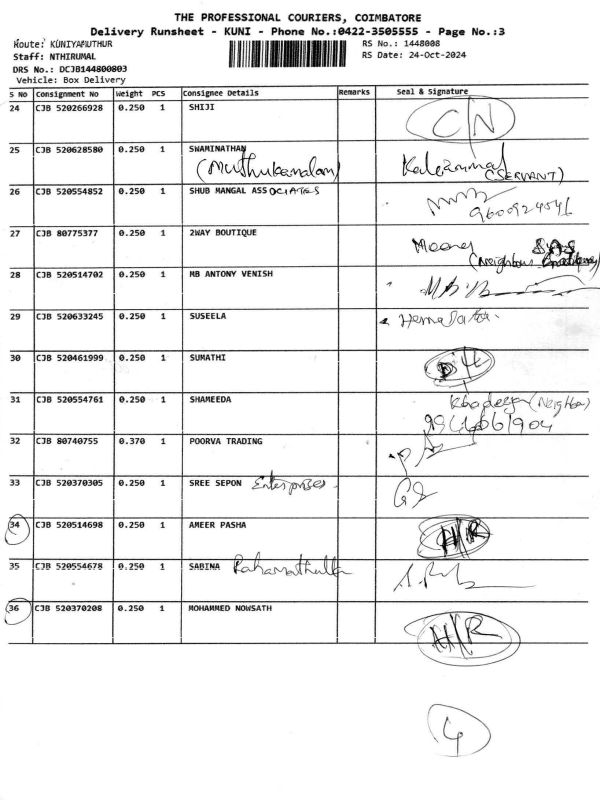 THE PROFESSIONAL COURIERS, COIMBATORE
Delivery Runsheet - KUNI - Phone No.:0422-3505555 - Page No.:3
Route: KUNIYAMUTHUR
RS No.: 1448008
Staff: NTHIRUMAL
RS Date: 24-Oct-2024
DRS No.: DCJB144800803
Vehicle: Box Delivery
S No Consignment No Weight PCS Consignee Details Remarks Seal & Signature
24 CJB 520266928 0.250 1 SHIJI CN
25 CJB 520628580 0.250 1 SWAMINATHAN
(SERVANT)
26 CJB 520554852 0.250 1 SHUB MANGAL ASSOCIATES
9600924541
27 CJB 80775377 0.250 1 2WAY BOUTIQUE
28 CJB 520514702 0.250 1 MB ANTONY VENISH
29 CJB 520633245 0.250 1 SUSEELA
30 CJB 520461999 0.250 1 SUMATHI
31 CJB 520554761 0.250 1 SHAMEEDA
32 CJB 80740755 0.370 1 POORVA TRADING
33 CJB 520370305 0.250 1 SREE SEPON Enterprises
34 CJB 520514698 0.250 1 AMEER PASHA
35 CJB 520554678 0.250 1 SABINA Rahamathulla
36 CJB 520370208 0.250 1 MOHAMMED NOWSATH
4